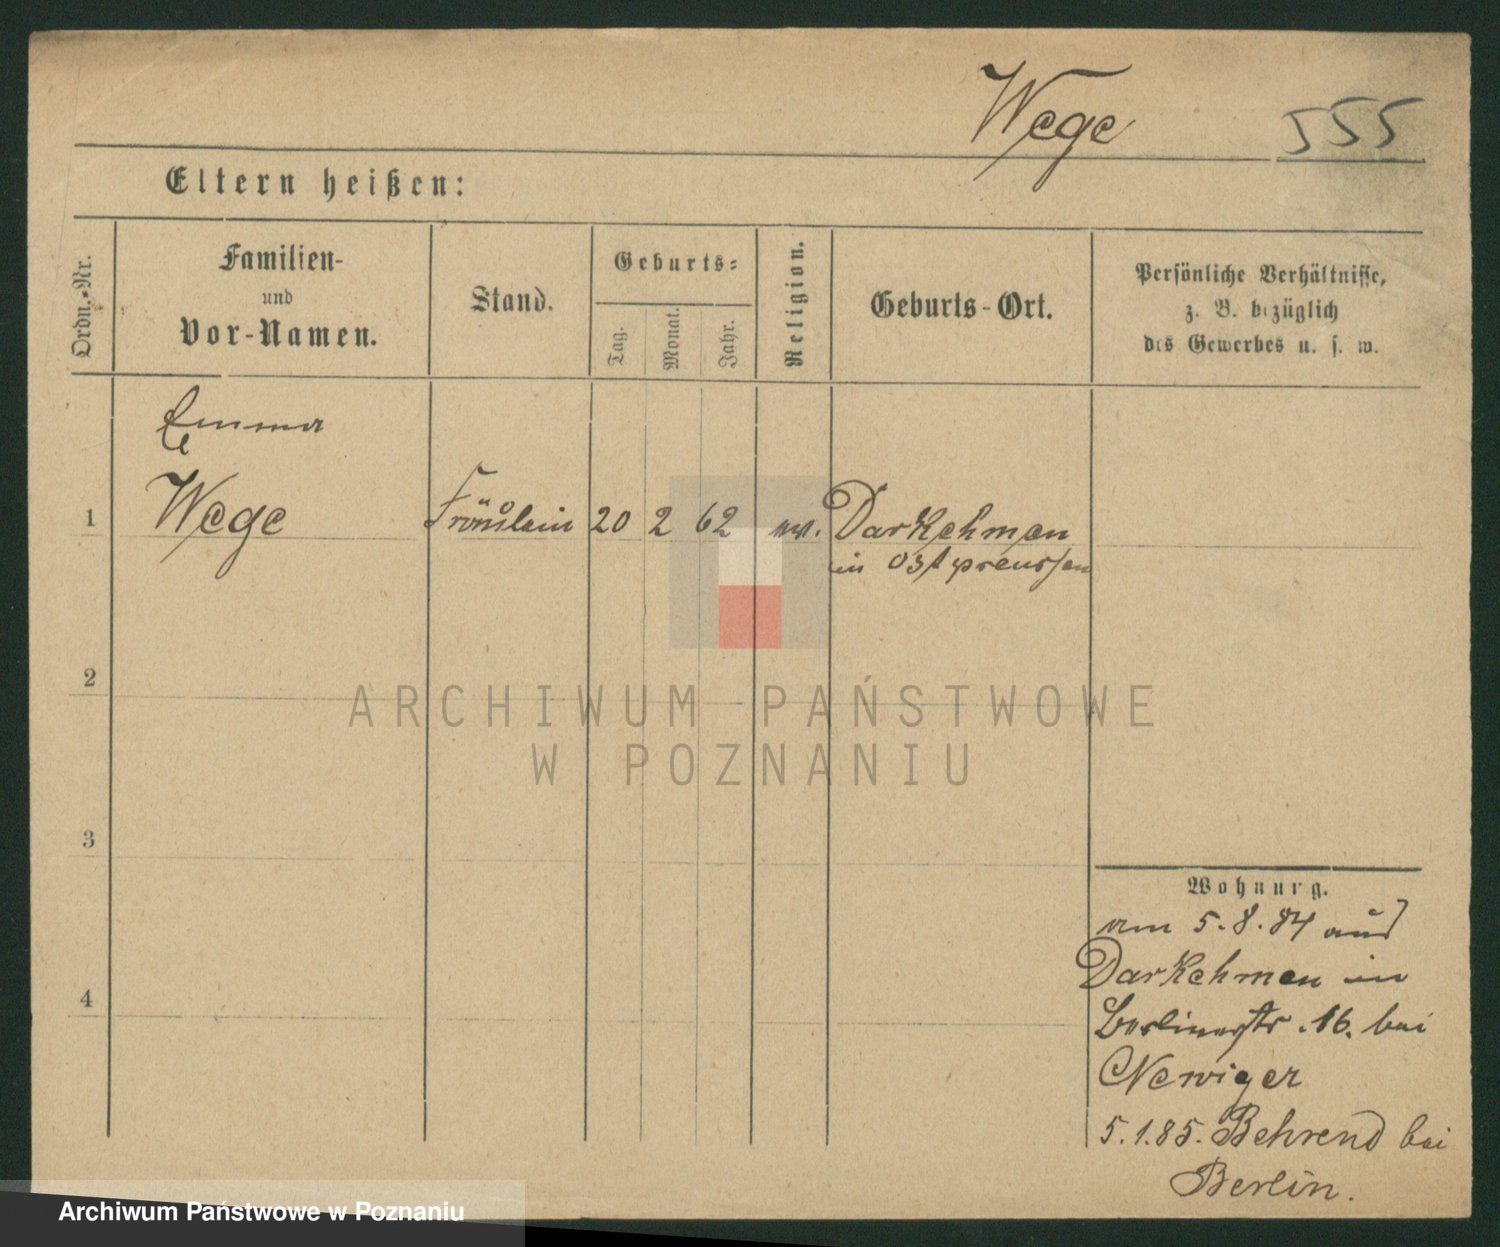 Wege 555
Eltern heißen:
Ordn.-Nr.
Familien-
und
Vor-Namen.
Stand.
Geburts-
Tag.
Monat.
Jahr.
Religion.
Geburts-Ort.
Persönliche Verhältnisse,
z. B. bezüglich
des Gewerbes u. s. w.
Emma
1 Wege Fräulein 20 2 62 ev. Darkehmen
in Ostpreussen
2
3
4
Wohnung.
am 5.8.84 aus
Darkehmen in
Berlinerstr. 16. bei
Newiger
5.1.85. Behrend bei
Berlin.
ARCHIWUM PAŃSTWOWE
W POZNANIU
Archiwum Państwowe w Poznaniu